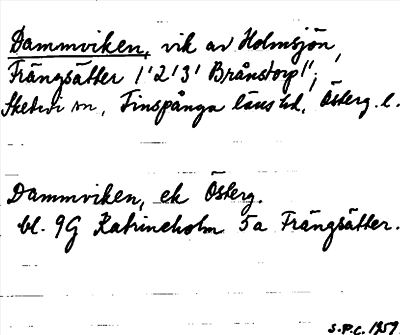 Dammviken, vik av Holmsjön,
Frängsätter 1'2'3' Brånstorp 1';
Skedevi sn, Finspånga läns hd, Österg. l.
Dammviken, ek Österg.
bl. 9G Katrineholm 5a Frängsätter.
S.P.C. 1959